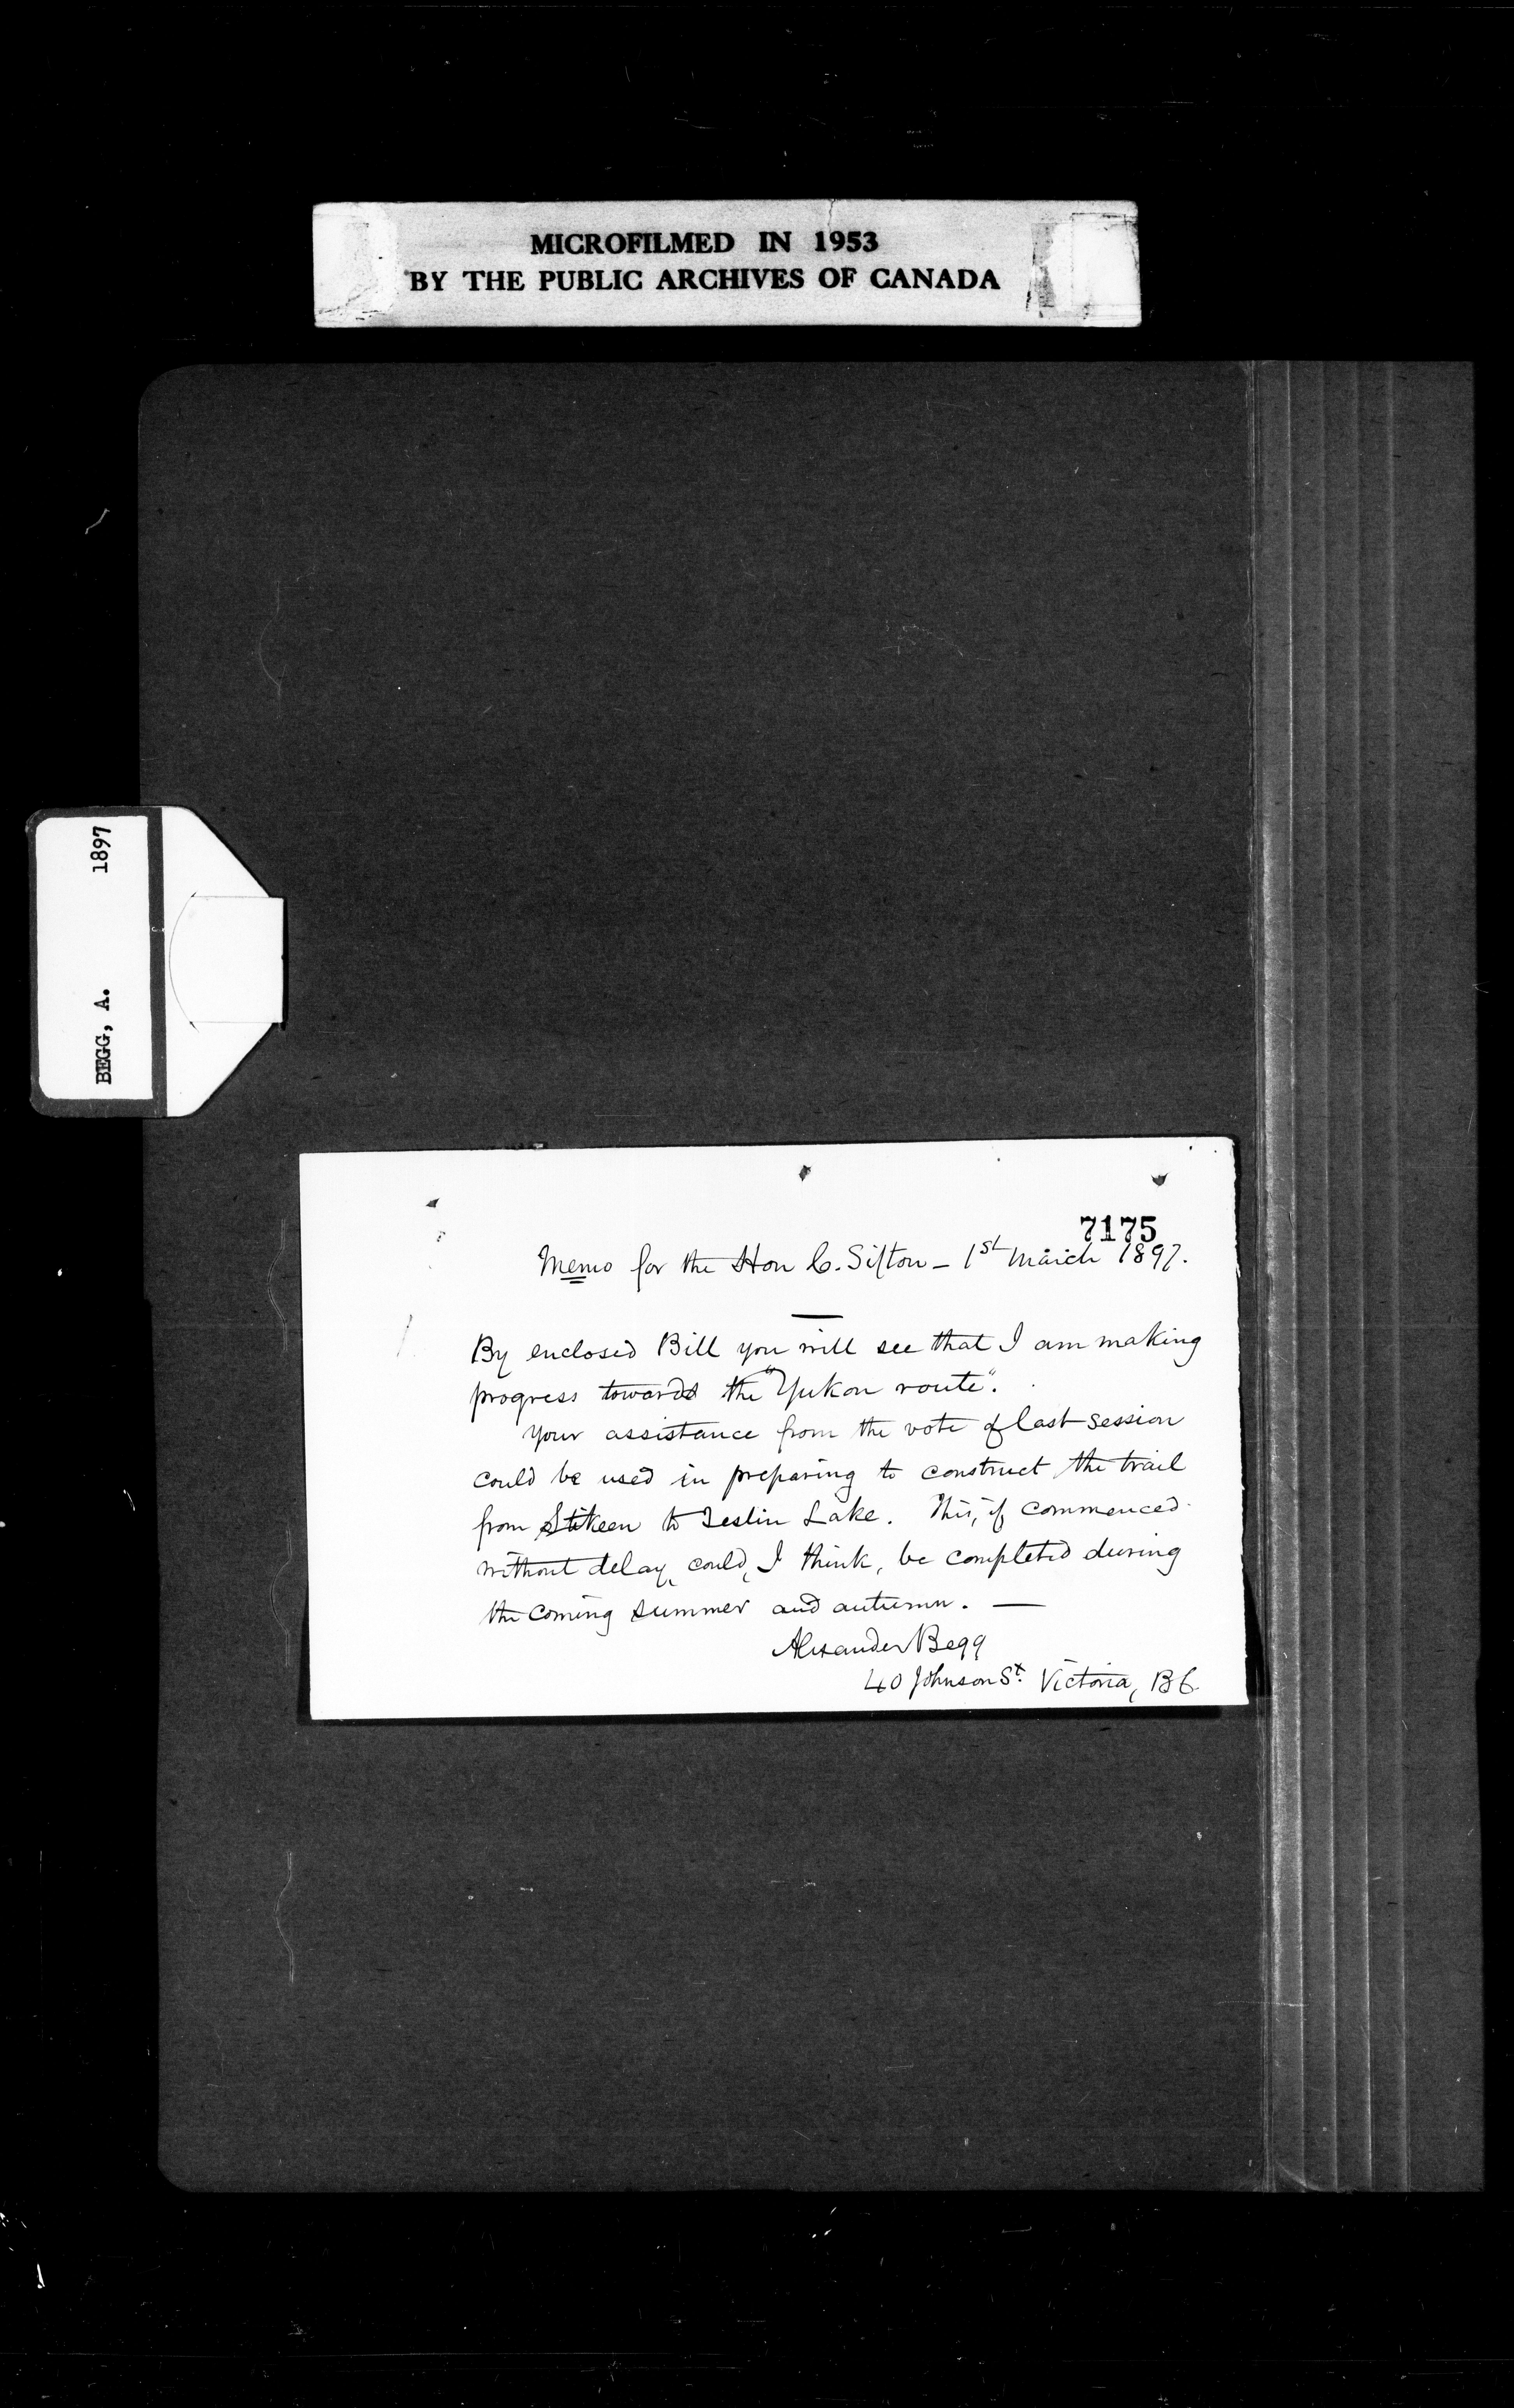 MICROFILMED IN 1953
BY THE PUBLIC ARCHIVES OF CANADA
BEGG, A. 1897
7175
Memo for the Hon C. Sifton – 1st March 1897.
By enclosed Bill you will see that I am making
progress towards the "Yukon route".
Your assistance from the vote of last session
could be used in preparing to construct the trail
from Stikeen to Teslin Lake. This, if commenced
without delay, could, I think, be completed during
the coming summer and autumn. —
Alexander Begg
40 Johnson St. Victoria, BC.